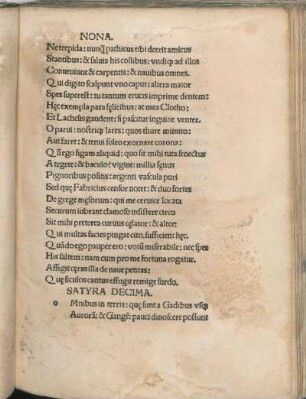 NONA.
Ne trepida: nunq̃ pathicus tibi deerit amicus
Stantibus: & saluis his collibus: undiq; ad illos
Conueniunt: & carpentis: & nauibus omnes.
Qui digito scalpunt uno caput: altera maior
Spes superest: tu tantum erucis imprime dentem:
Hęc exempla para fęlicibus: at mea Clotho:
Et Lachesis gaudent: si pascitur inguine venter.
O parui: nostriq; lares: quos thure minuto:
Aut farre: & tenui soleo exornare corona:
Qñ ego figam aliquid: quo sit mihi tuta senectus
A tegete: & baculo? viginti: millia fęnus
Pignoribus positis: argenti vascula puri
Sed quę Fabricius censor notet: & duo fortes
De grege męsorum: qui me ceruice locata
Securum iubeant clamoso insistere circo
Sit mihi preterea curuus cęlator: & alter:
Qui multas facies pingat cito. sufficient: hęc.
Quãdo ego pauper ero: votũ miserabile; nec spes
His saltem: nam cum pro me fortuna rogatur.
Affigit cęras illa de naue petitas:
Quę siculos cantus effugit remige surdo.
SATYRA DECIMA.
o Mnibus in terris: quę sunt a Gadibus vsq;
Aurorã: & Gangẽ: pauci dinoscere possunt